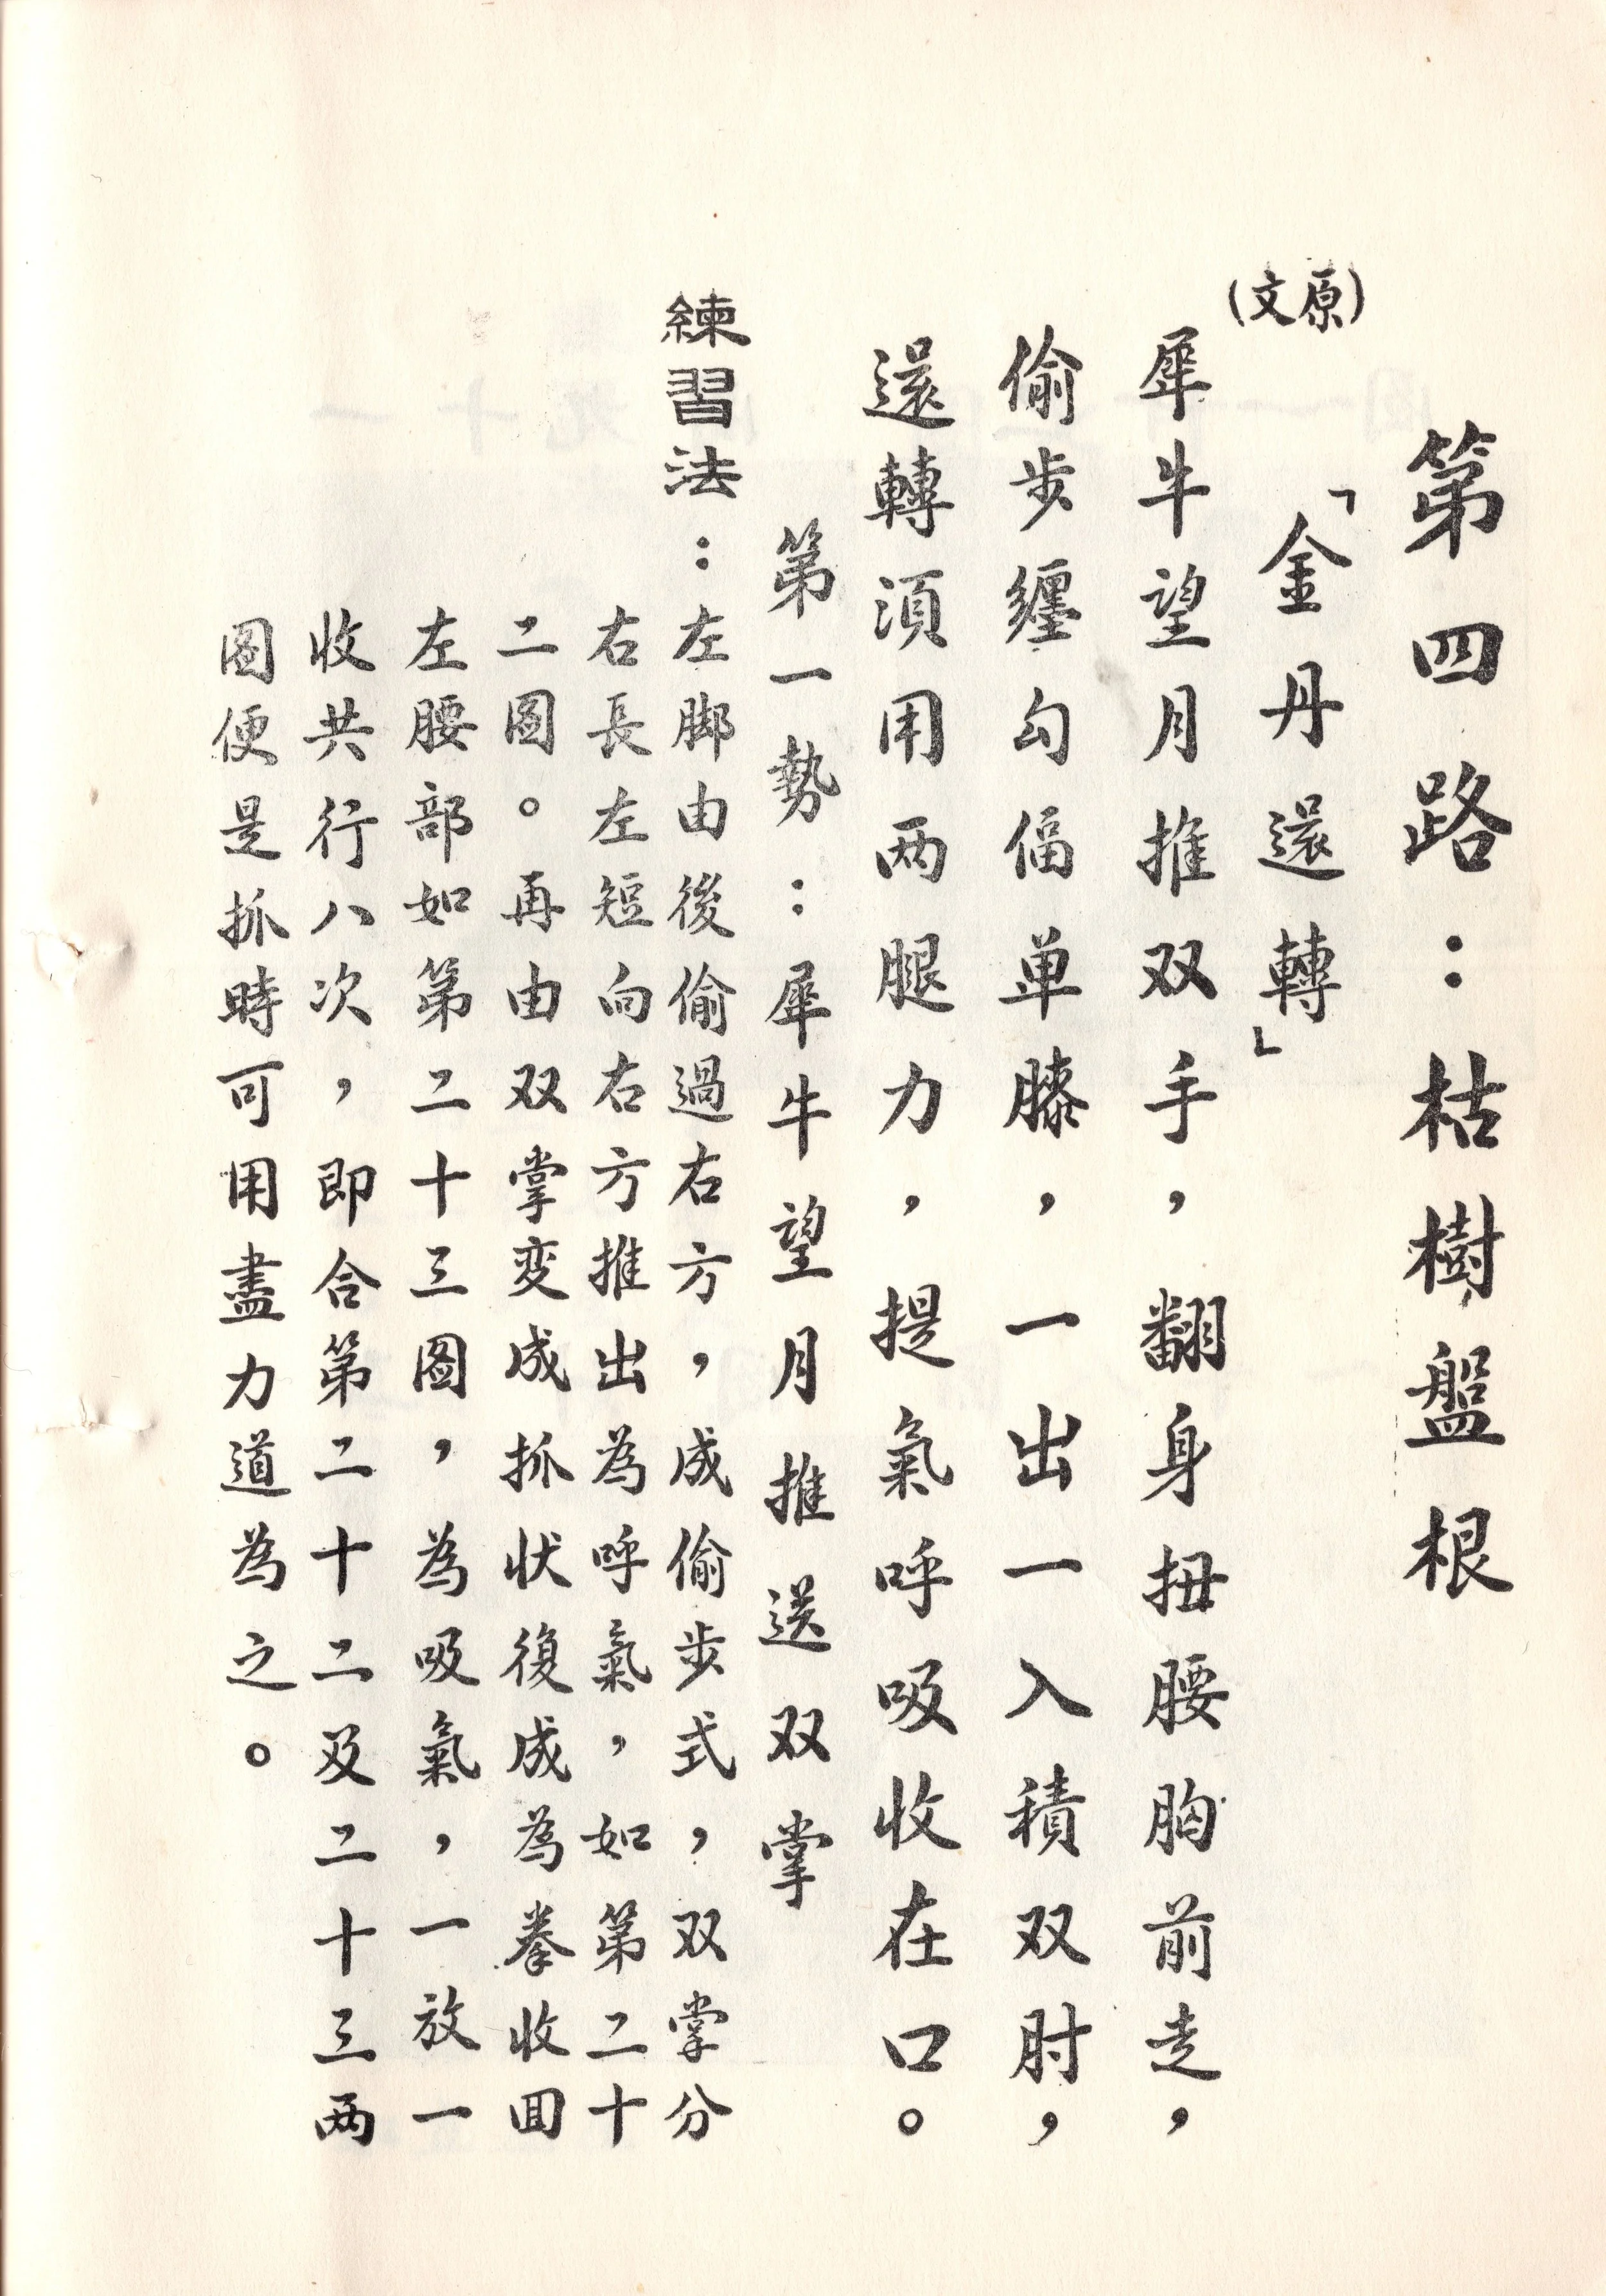 第四路：枯樹盤根
「金丹還轉」
(原文)
犀牛望月推双手，翻身扭腰胸前走，
偷步纏勾偪单膝，一出一入積双肘，
還轉須用两腿力，提氣呼吸收在口。
第一勢：犀牛望月推送双掌
練習法：左脚由後偷過右方，成偷步式，双掌分
右長左短向右方推出為呼氣，如第二十
二圖。再由双掌变成抓状復成為拳收囬
左腰部如第二十三图，為吸氣，一放一
收共行八次，即合第二十二及二十三两
圖便是抓時可用盡力道為之。